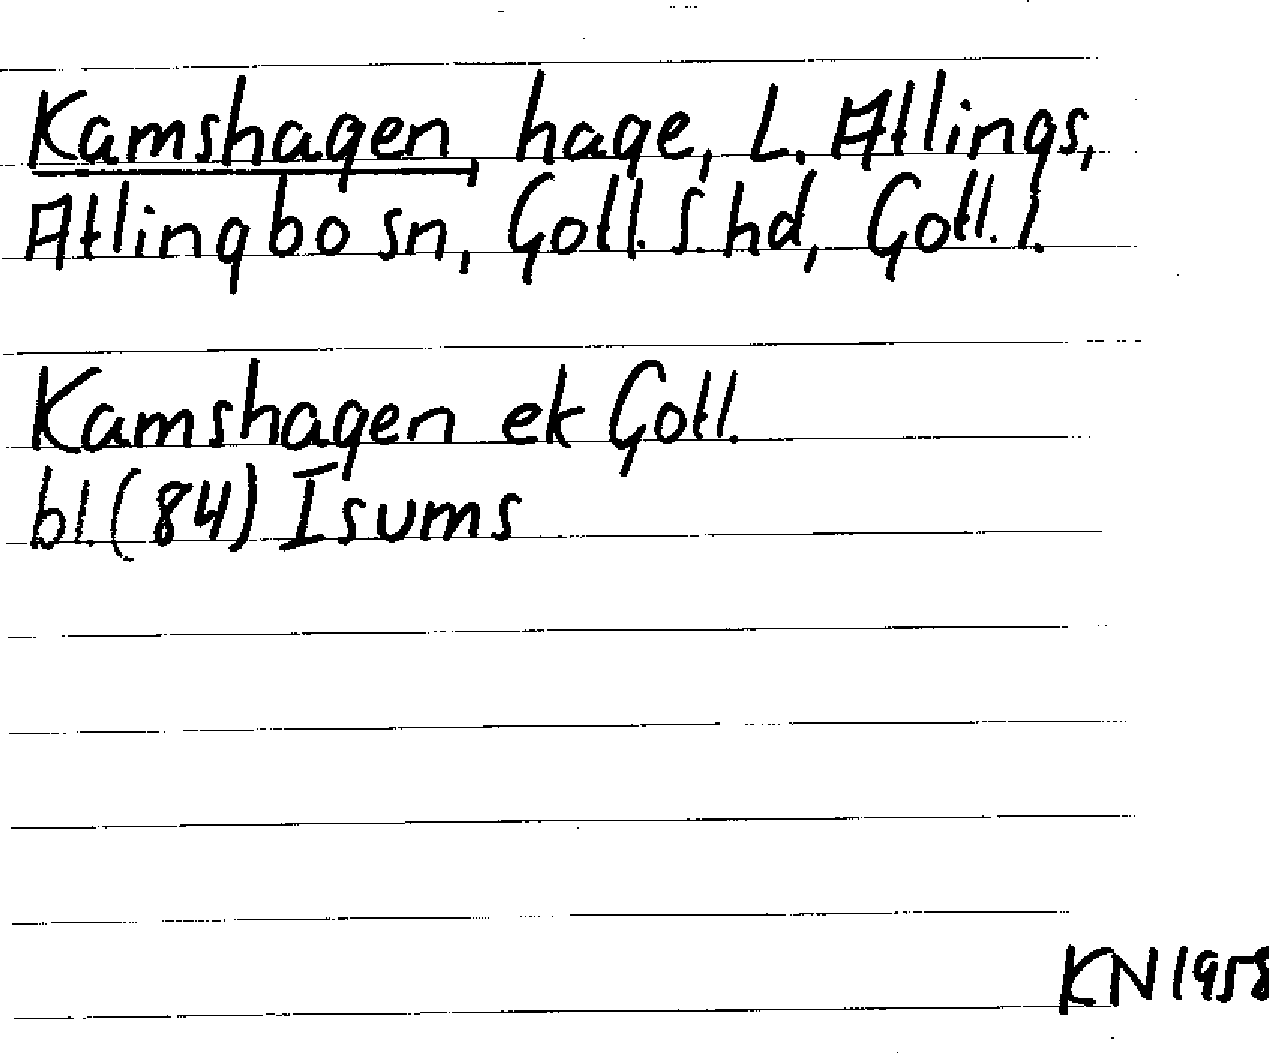 Kamshagen, hage, L. Atlings,
Atlingbo sn, Gotl. S. hd, Gotl. l.
Kamshagen ek Gotl.
bl. (84) Isums
KN 1958